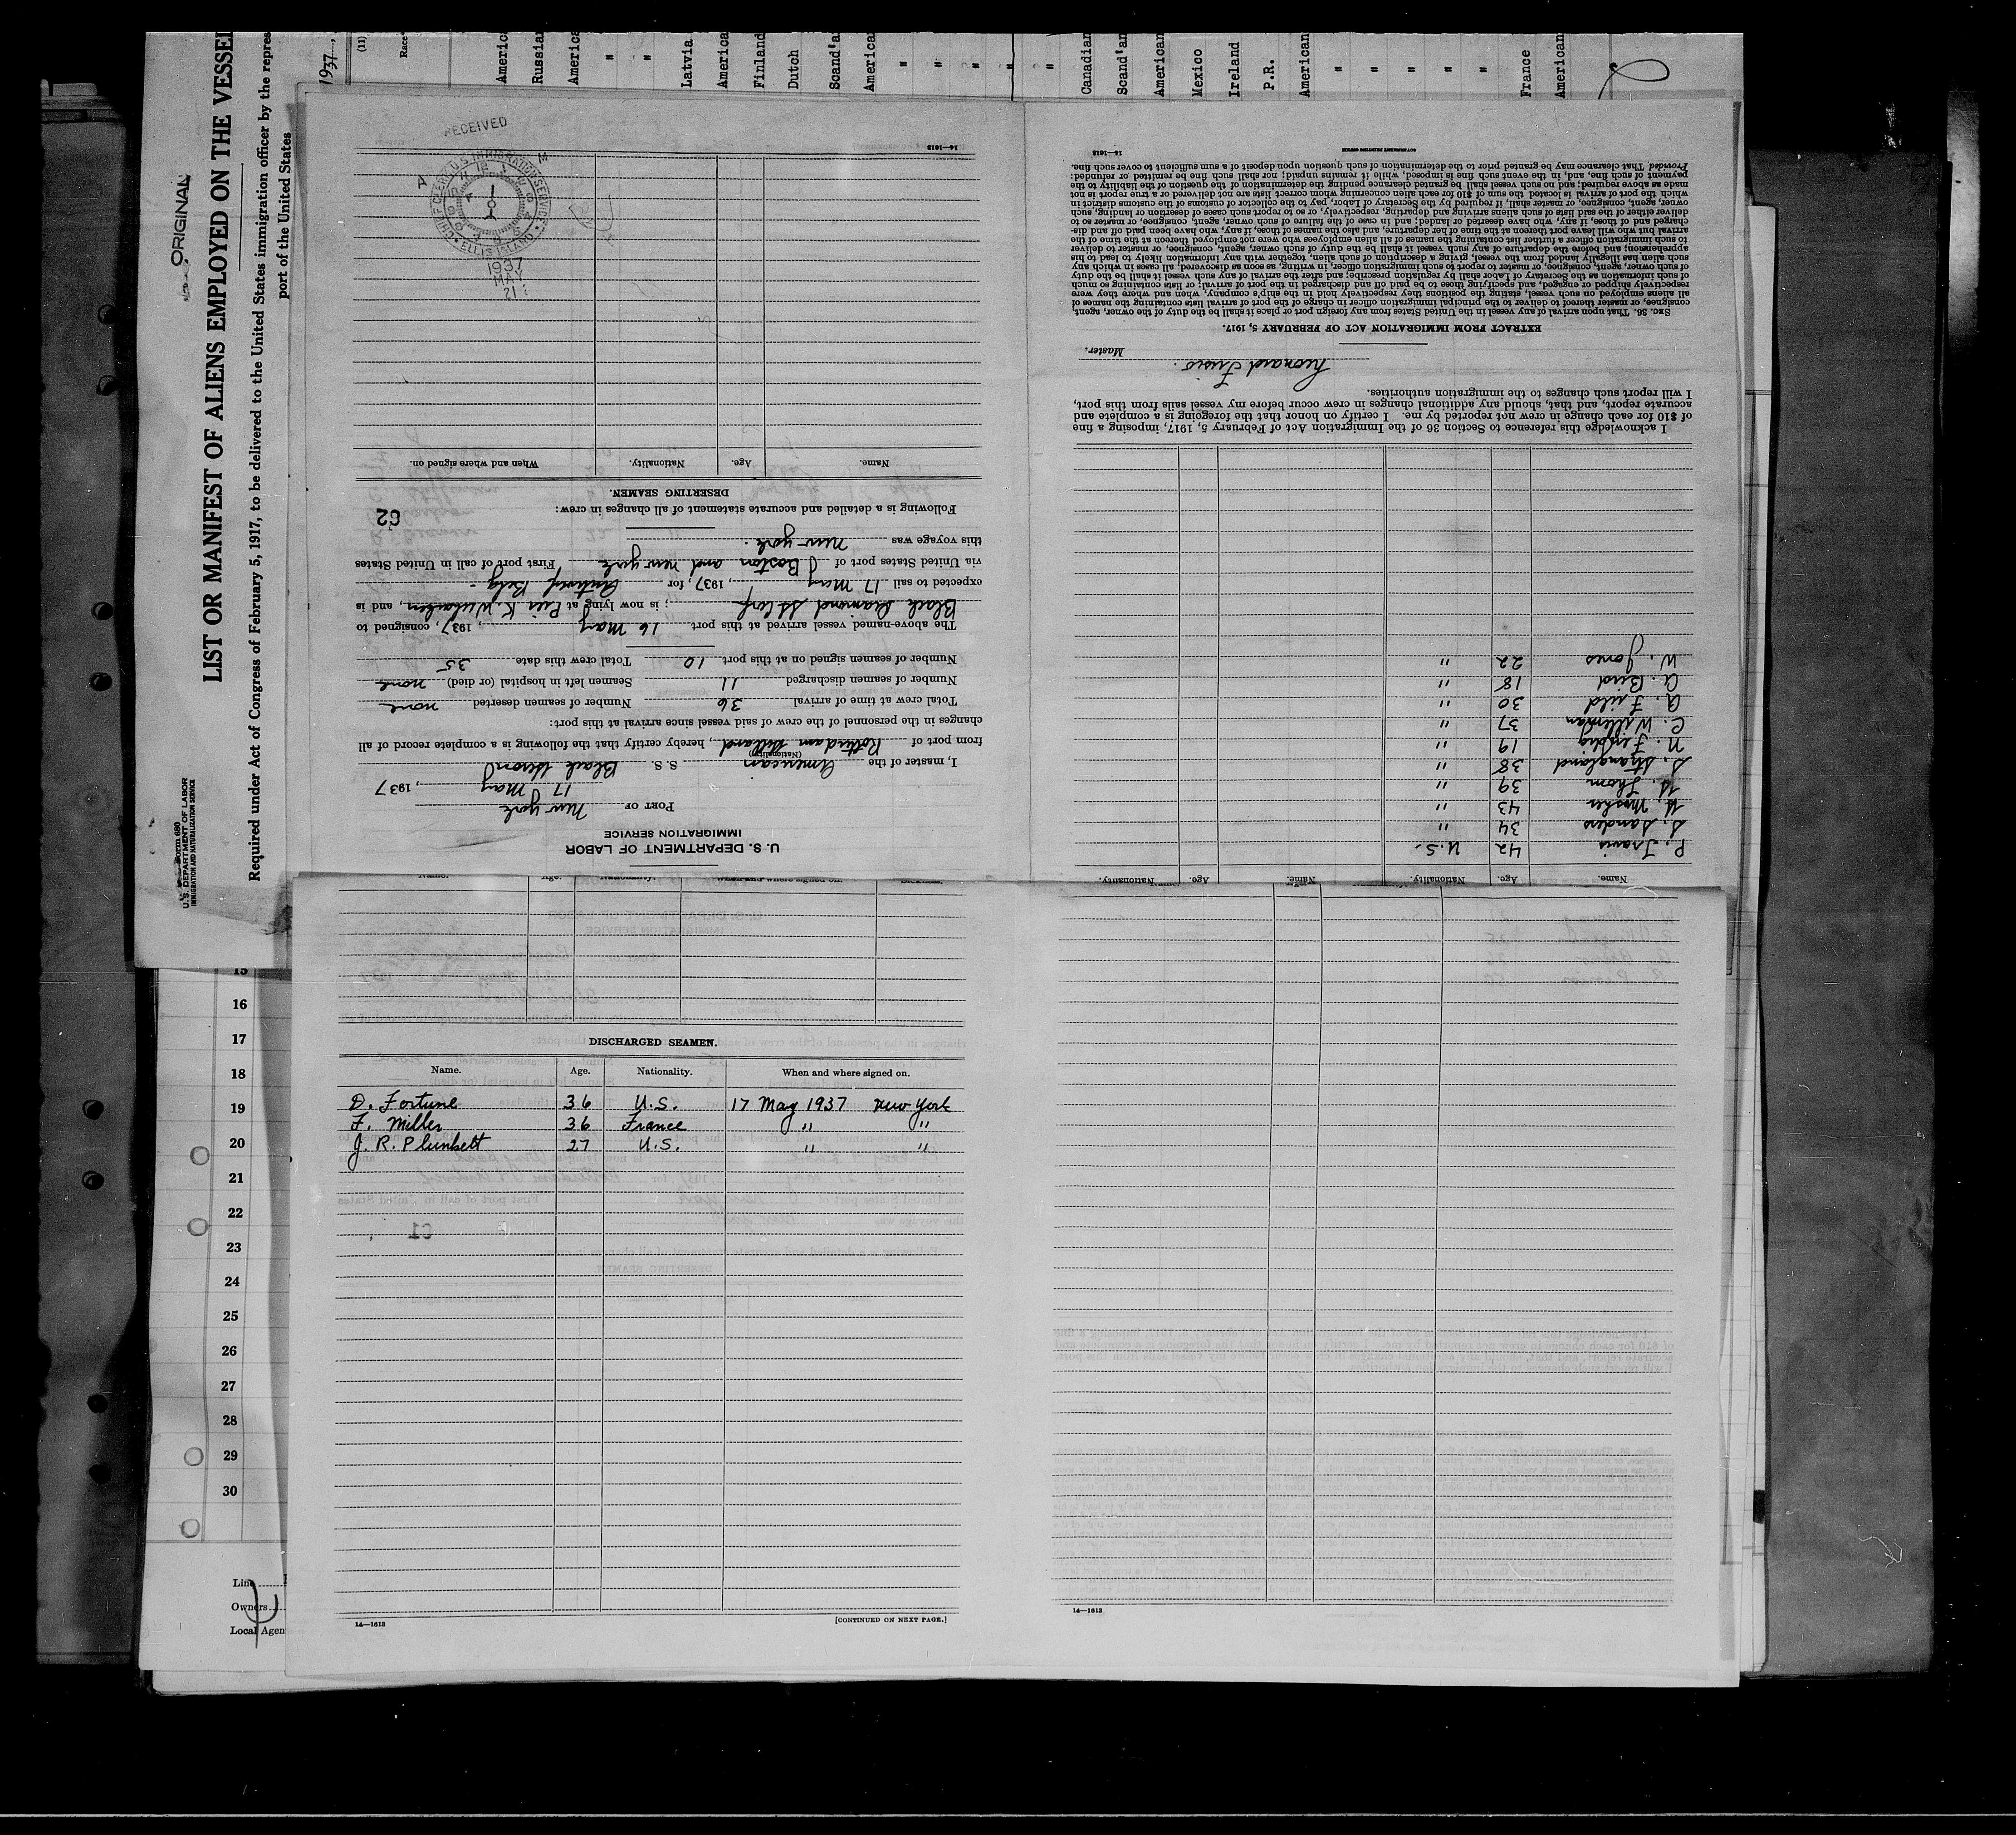 ORIGINAL
LIST OR MANIFEST OF ALIENS EMPLOYED ON THE VESSEL
Required under Act of Congress of February 5, 1917, to be delivered to the United States immigration officer by the repres
port of the United States
Form 680
U. S. DEPARTMENT OF LABOR
IMMIGRATION AND NATURALIZATION SERVICE
1937
(11)
Race*
America
Russia
America
"
"
Latvia
America
Finland
Dutch
Scand'a
America
"
"
"
"
"
Canadian
Scand'an
American
Mexico
Ireland
P.R.
American
"
"
"
"
"
France
American
U. S. DEPARTMENT OF LABOR
IMMIGRATION SERVICE
PORT OF New York
17 May, 1937
I, master of the American S. S. Black Heron
(Nationality)
from port of Rotterdam Holland, hereby certify that the following is a complete record of all
changes in the personnel of the crew of said vessel since arrival at this port:
Total crew at time of arrival 36 Number of seamen deserted none
Number of seamen discharged 11 Seamen left in hospital (or died) none
Number of seamen signed on at this port 10 Total crew this date 35
The above-named vessel arrived at this port 16 May, 1937, consigned to
Black Diamond St Corp; is now lying at Pier K. Weehawken, and is
expected to sail 17 May, 1937, for Antwerp Belg
via United States port of Boston and New York First port of call in United States
this voyage was New York.
Following is a detailed and accurate statement of all changes in crew:
62
DESERTING SEAMEN.
Name. Age. Nationality. When and where signed on.
RECEIVED
OFFICER U.S. IMMIGRATION SERVICE
ELLIS ISLAND
A M
1937
MAY
21
16—1613
Name. Age. Nationality. Name. Age. Nationality.
P. Travis 42 U.S.
S. Sanders 34 "
H. Mosher 43 "
H. Thom 39 "
S. Strangland 38 "
N. Ferdig 19 "
C. Willeman 37 "
A. Field 30 "
A. Bird 18 "
W. Jones 22 "
I acknowledge this reference to Section 36 of the Immigration Act of February 5, 1917, imposing a fine
of $10 for each change in crew not reported by me. I certify on honor that the foregoing is a complete and
accurate report, and that, should any additional changes in crew occur before my vessel sails from this port,
I will report such changes to the immigration authorities.
Leonard
Master.
EXTRACT FROM IMMIGRATION ACT OF FEBRUARY 5, 1917.
SEC. 36. That upon arrival of any vessel in the United States from any foreign port or place it shall be the duty of the owner, agent,
consignee, or master thereof to deliver to the principal immigration officer in charge of the port of arrival lists containing the names of
all aliens employed on such vessel, stating the positions they respectively hold in the ship's company, when and where they were
respectively shipped or engaged, and specifying those to be paid off and discharged in the port of arrival; or lists containing so much
of such information as the Secretary of Labor shall by regulation prescribe; and after the arrival of any such vessel it shall be the duty
of such owner, agent, consignee, or master to report to such immigration officer, in writing, as soon as discovered, all cases in which any
such alien has illegally landed from the vessel, giving a description of such alien, together with any information likely to lead to his
apprehension; and before the departure of any such vessel it shall be the duty of such owner, agent, consignee, or master to deliver
to such immigration officer a further list containing the names of all alien employees who were not employed thereon at the time of the
arrival but who will leave port thereon at the time of her departure, and also the names of those, if any, who have been paid off and dis-
charged and of those, if any, who have deserted or landed; and in case of the failure of such owner, agent, consignee, or master so to
deliver either of the said lists of such aliens arriving and departing, respectively, or so to report such cases of desertion or landing, such
owner, agent, consignee, or master shall, if required by the Secretary of Labor, pay to the collector of customs of the customs district in
which the port of arrival is located the sum of $10 for each alien concerning whom correct lists are not delivered or a true report is not
made as above required; and no such vessel shall be granted clearance pending the determination of the question of the liability to the
payment of such fine, and, in the event such fine is imposed, while it remains unpaid; nor shall such fine be remitted or refunded:
Provided, That clearance may be granted prior to the determination of such question upon deposit of a sum sufficient to cover such fine.
GOVERNMENT PRINTING OFFICE
16—1613
Name. Age. Nationality. When and where signed on.
DISCHARGED SEAMEN.
Name. Age. Nationality. When and where signed on.
D. Fortune 36 U.S. 17 May 1937 New York
F. Miller 36 France " "
J. R. Plunkett 27 U.S. " "
61
14—1613
[CONTINUED ON NEXT PAGE.]
14—1613
15
16
17
18
19
20
21
22
23
24
25
26
27
28
29
30
Line
Owners
Local Agen